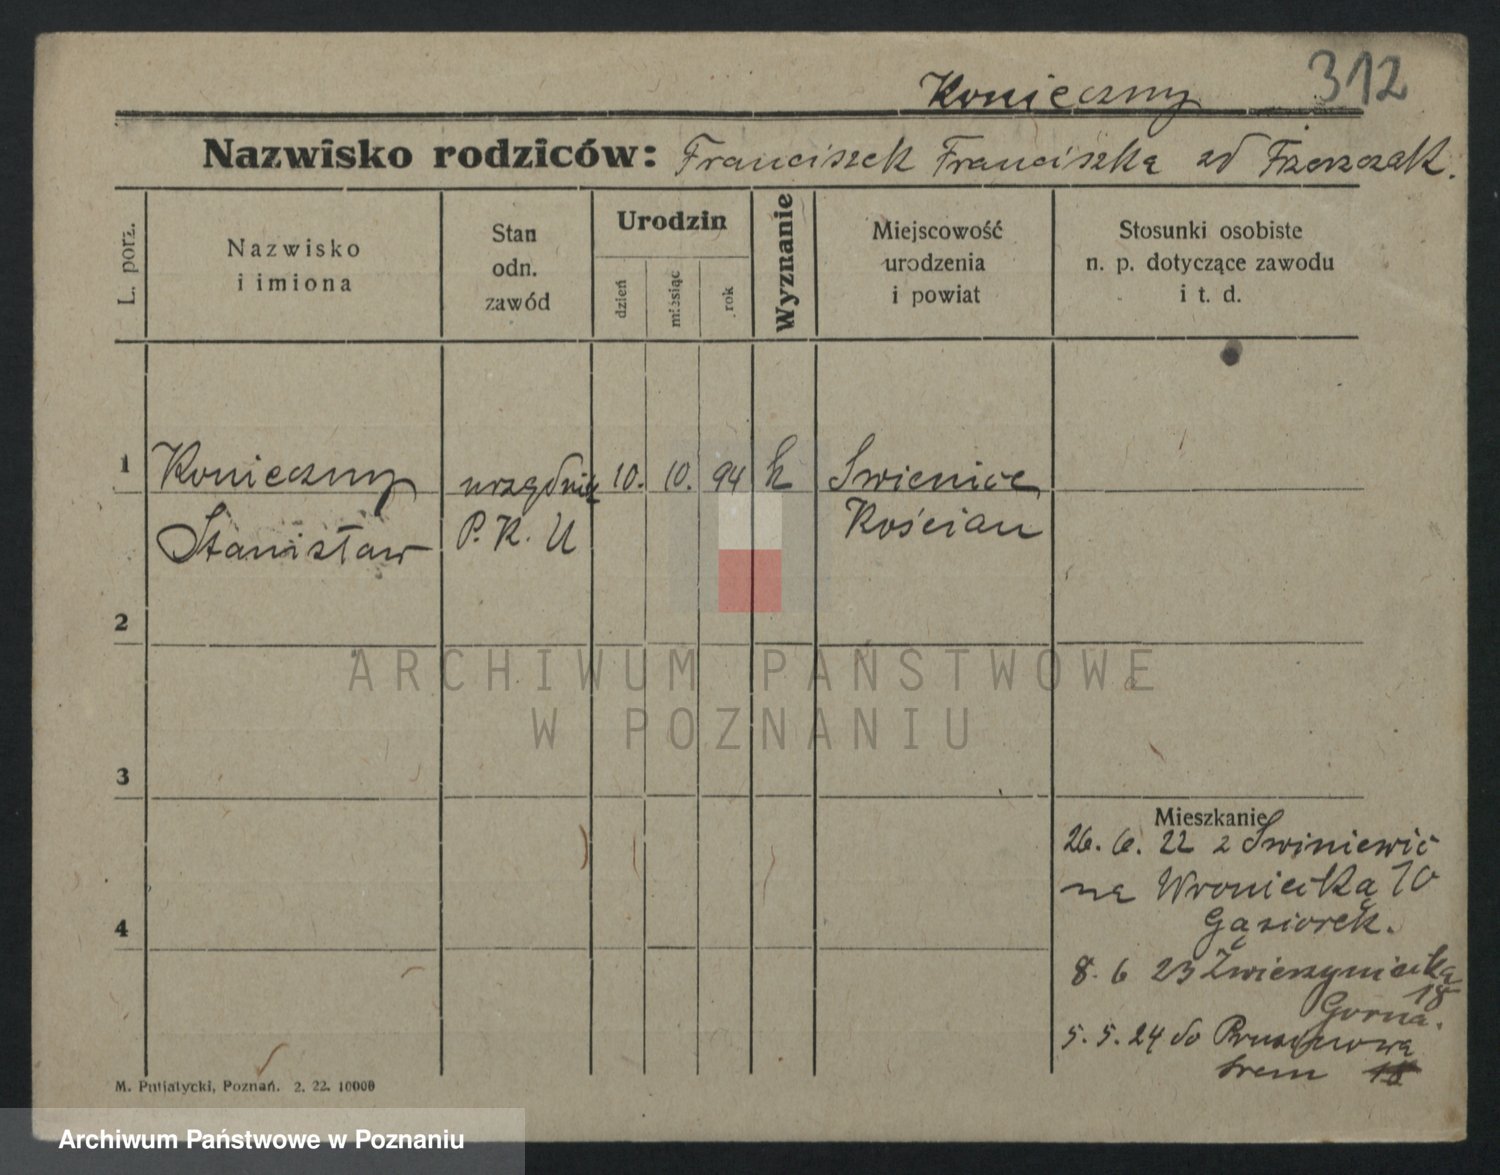 Konieczny 312
Nazwisko rodziców: Franciszek Franciszka zd
L. porz.
Nazwisko
i imiona
Stan
odn.
zawód
Urodzin
dzień
miesiąc
rok
Wyznanie
Miejscowość
urodzenia
i powiat
Stosunki osobiste
n. p. dotyczące zawodu
i t. d.
1 Konieczny urzędnik 10. 10. 94 k Swienice
Stanisław P. K. U Kościan
2
ARCHIWUM PAŃSTWOWE
W POZNANIU
3
Mieszkanie
26. 6. 22 z Swiniewic
na Wroniecka 10
4 Gąsiorek.
8. 6 23 Zwierzyniecka
18
Gorna.
5. 5. 24 do
Srem
M. Putiatycki, Poznań. 2. 22. 10000
Archiwum Państwowe w Poznaniu